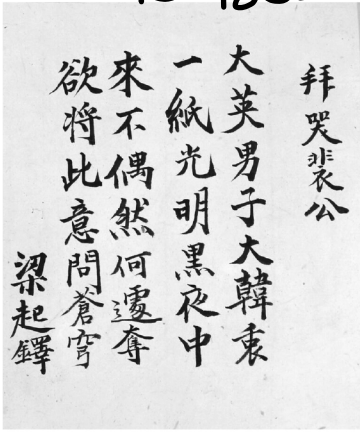 拜哭裴公
大英男子大韓衷
一紙光明黑夜中
來不偶然何遽奪
欲将此意問蒼穹
梁起鐸